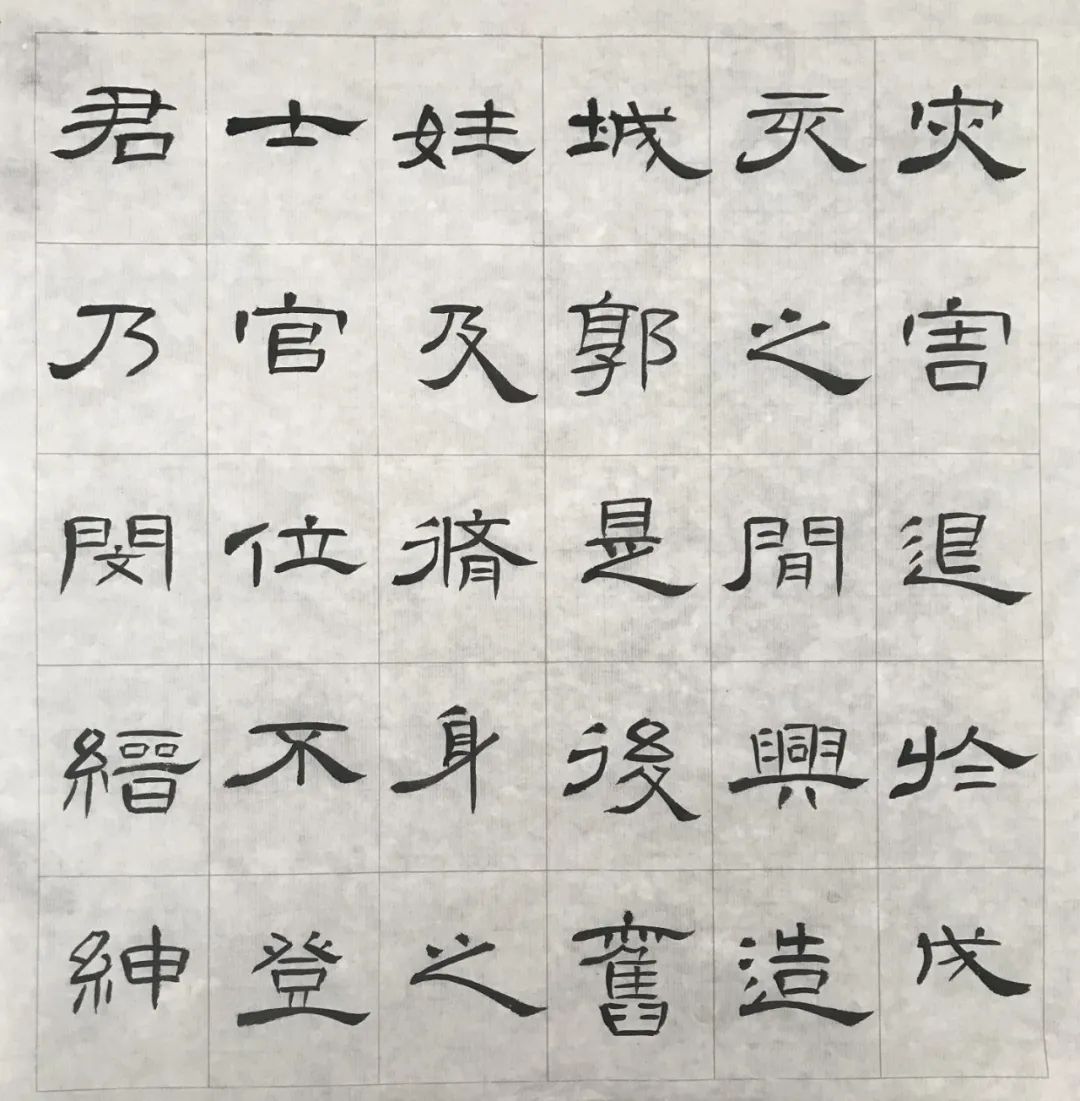 灾害退於戌
亥之間興造
城郭是後舊
姓及脩身之
士官位不登
君乃閔縉紳